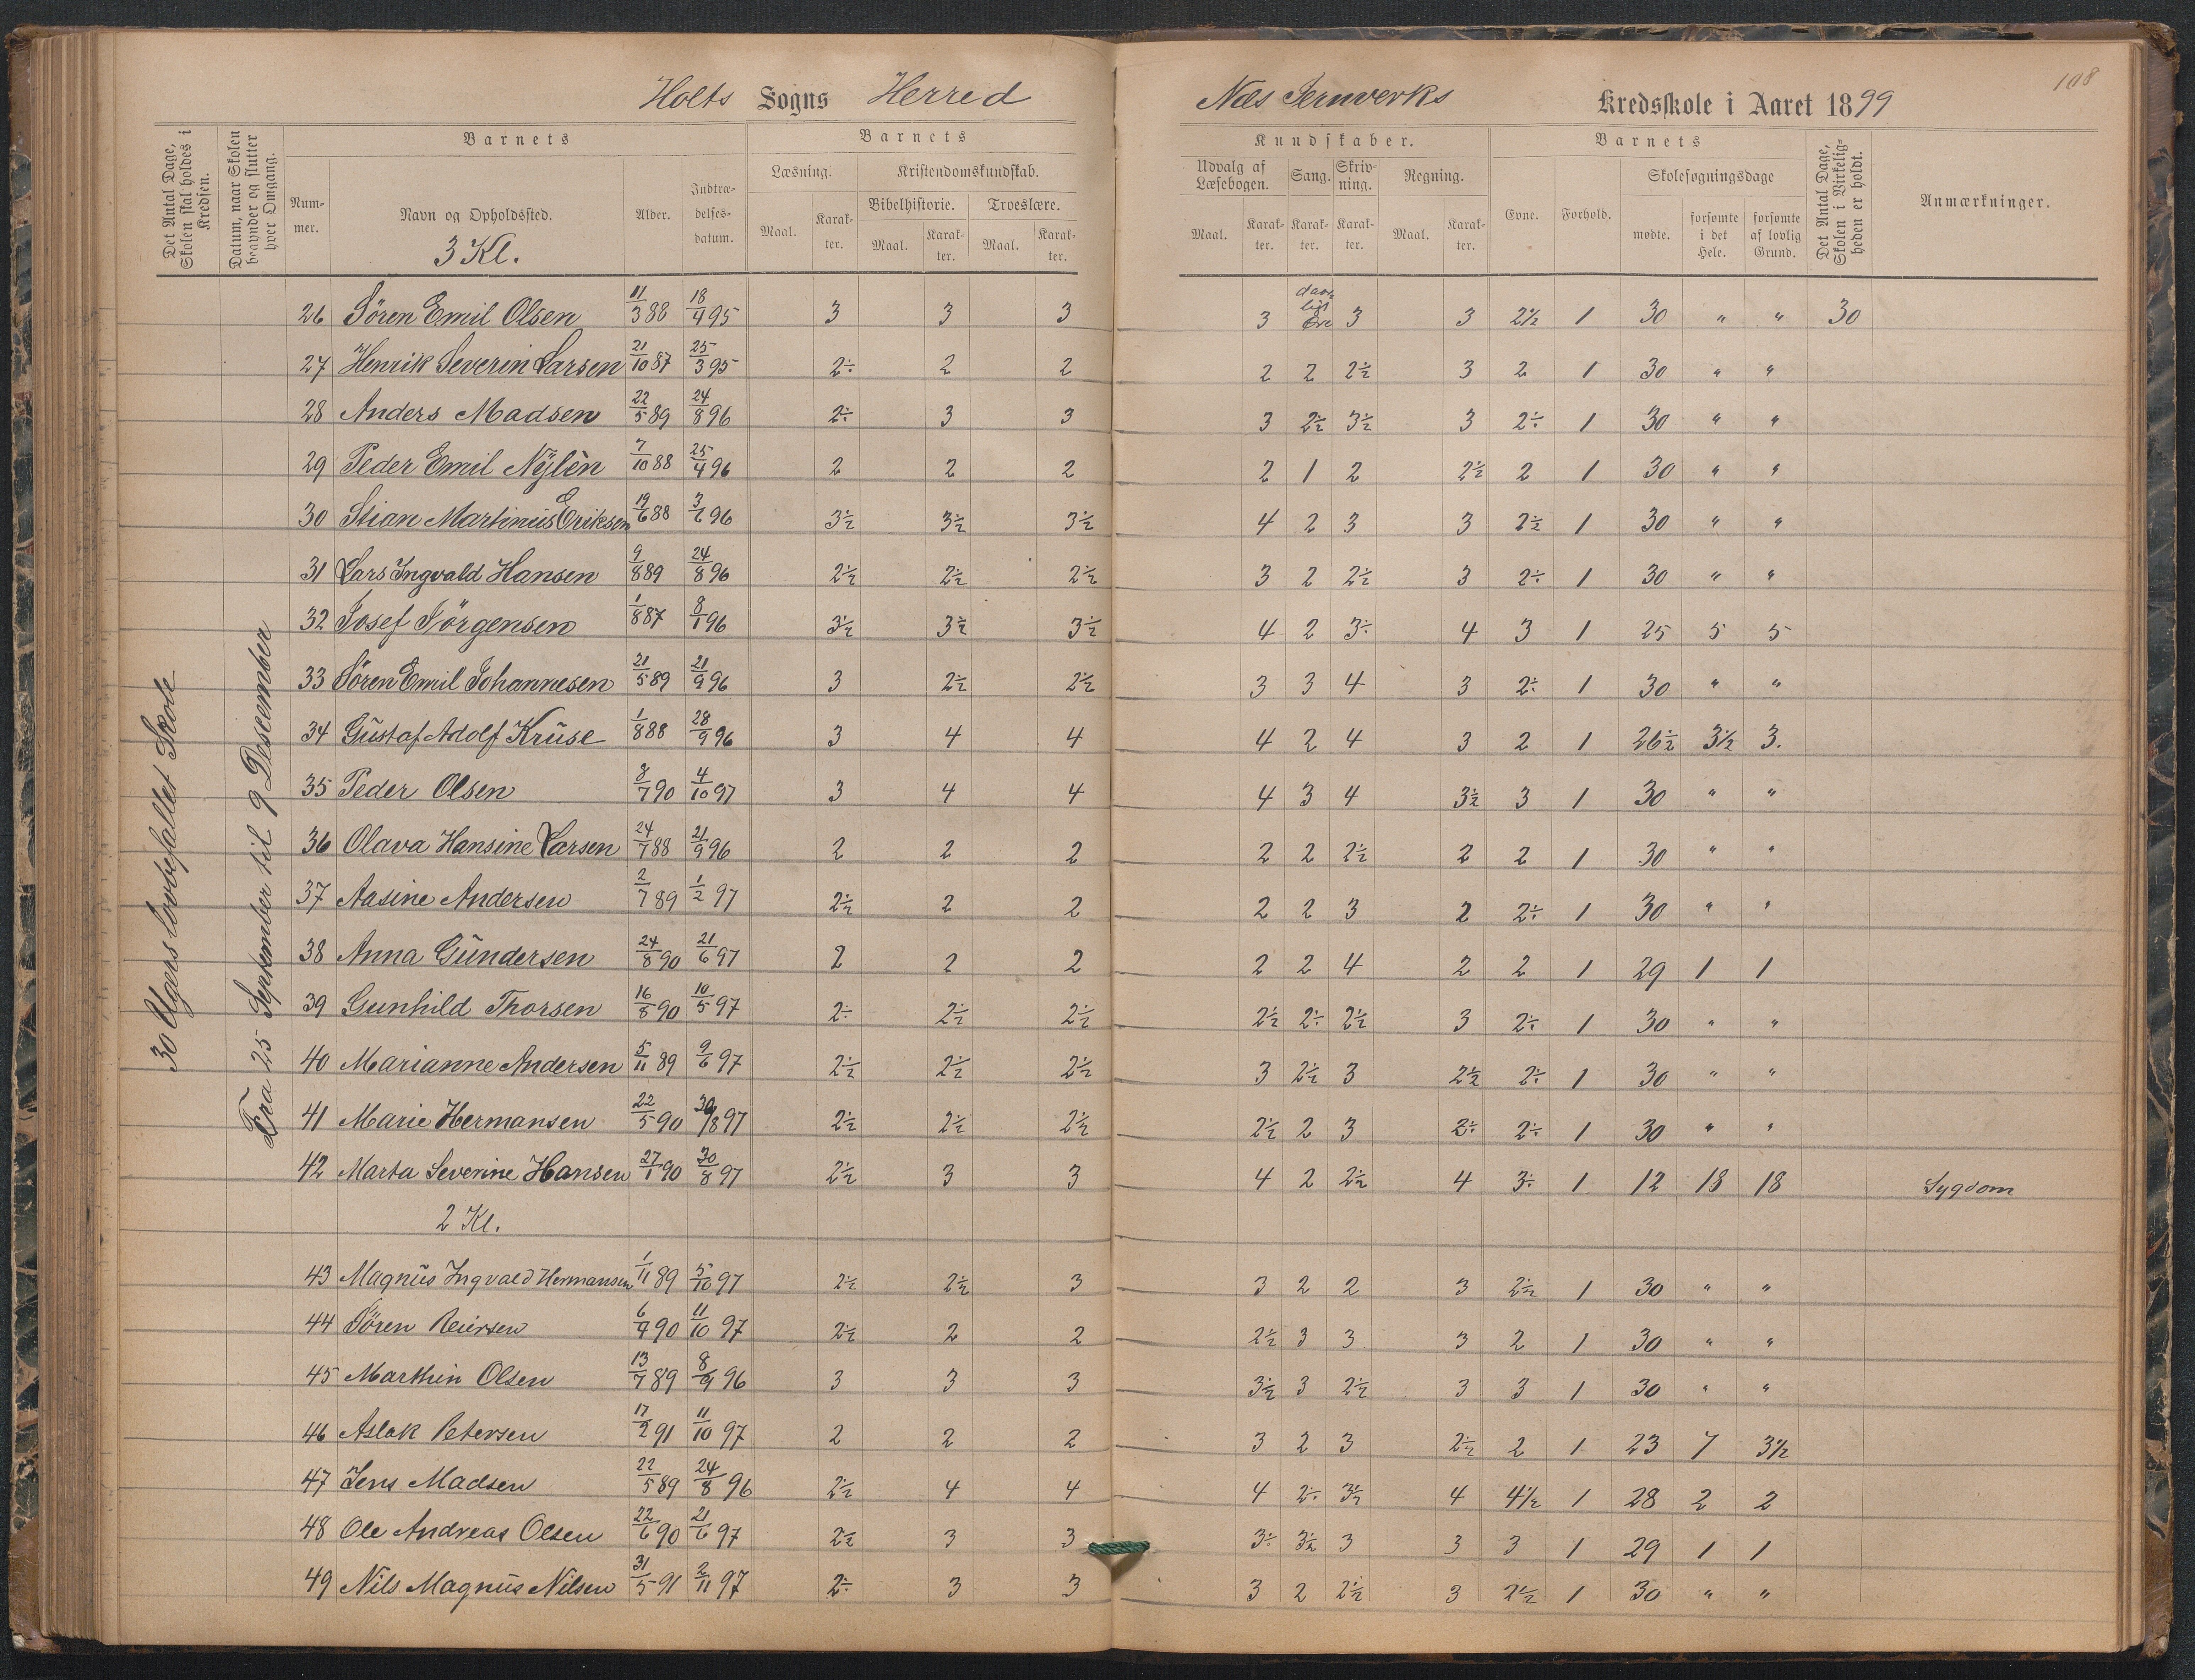 Holts Sogns Herred
Næs Jernverks Kredsskole i Aaret 1899
108
Det Antal Dage, Skolen skal holdes i Kredsen.
Datum, naar Skolen begynder og slutter hver Omgang.
Barnets
Barnets
Kundskaber.
Barnets
Num-mer.
Navn og Opholdssted.
Alder.
Indtræ-delses-datum.
Læsning.
Kristendomskundskab.
Bibelhistorie.
Troeslære.
Maal. Karak-ter. Maal. Karak-ter. Maal. Karak-ter.
Udvalg af Læsebogen.
Sang.
Skriv-ning.
Regning.
Maal. Karak-ter. Karak-ter. Karak-ter. Maal. Karak-ter.
Evne.
Forhold.
Skolesøgningsdage
mødte.
forsømte i det Hele.
forsømte af lovlig Grund.
Det Antal Dage, Skolen i Virkelig-heden er holdt.
Anmærkninger.
30 Ugers lovbefallet Skole
Fra 25 September til 9 Descember
3 Kl.
26 Sören Emil Olsen 11/3 88 18/4 95 3 3 3 3 daar-ligt Öre 3 3 2½ 1 30 " " 30
27 Henrik Severin Larsen 21/10 87 25/3 95 2÷ 2 2 2 2 2½ 3 2 1 30 " "
28 Anders Madsen 22/5 89 24/8 96 2÷ 3 3 3 2½ 3½ 3 2÷ 1 30 " "
29 Peder Emil Nylèn 7/10 88 25/4 96 2 2 2 2 1 2 2½ 2 1 30 " "
30 Stian Martinus Eriksen 19/6 88 3/6 96 3½ 3½ 3½ 4 2 3 3 2½ 1 30 " "
31 Lars Ingvald Hansen 9/8 89 24/8 96 2½ 2½ 2½ 3 2 2½ 3 2÷ 1 30 " "
32 Josef Jörgensen 1/8 87 8/1 96 3½ 3½ 3½ 4 2 3÷ 4 3 1 25 5 5
33 Sören Emil Johannesen 21/5 89 21/9 96 3 2½ 2½ 3 3 4 3 2÷ 1 30 " "
34 Gustaf Adolf Kruse 1/8 88 28/9 96 3 4 4 4 2 4 3 2 1 26½ 3½ 3.
35 Peder Olsen 8/7 90 4/10 97 3 4 4 4 3 4 3½ 3 1 30 " "
36 Olava Hansine Larsen 24/7 88 21/9 96 2 2 2 2 2 2½ 2 2 1 30 " "
37 Aasine Andersen 2/7 89 1/2 97 2½ 2 2 2 2 3 2 2÷ 1 30 " "
38 Anna Gundersen 24/8 90 21/6 97 2 2 2 2 2 4 2 2 1 29 1 1
39 Gunhild Thorsen 16/8 90 10/5 97 2÷ 2½ 2½ 2½ 2÷ 2½ 3 2÷ 1 30 " "
40 Marianne Andersen 5/11 89 9/6 97 2½ 2½ 2½ 3 2½ 3 2½ 2÷ 1 30 " "
41 Marie Hermansen 22/5 90 30/8 97 2½ 2½ 2½ 2½ 2 3 2÷ 2÷ 1 30 " "
42 Marta Severine Hansen 27/1 90 30/8 97 2½ 3 3 4 2 2½ 4 3÷ 1 12 18 18 Sygdom
2 Kl.
43 Magnus Ingvald Hermansen 1/11 89 5/10 97 2½ 2½ 3 3 2 2 3 2½ 1 30 " "
44 Sören Reiersen 6/9 90 11/10 97 2½ 2 2 2½ 3 3 3 2 1 30 " "
45 Marthin Olsen 13/7 89 8/9 96 3 3 3 3½ 3 2½ 3 3 1 30 " "
46 Aslak Petersen 17/2 91 11/10 97 2 2 2 3 2 3 2½ 2 1 23 7 3½
47 Jens Madsen 22/5 89 24/8 96 2½ 4 4 4 2÷ 3½ 4 4½ 1 28 2 2
48 Ole Andreas Olsen 22/6 90 21/6 97 2½ 3 3 3÷ 3½ 3 3 3 1 29 1 1
49 Nils Magnus Nilsen 31/5 91 2/11 97 2÷ 3 3 3 2 2½ 3 2½ 1 30 " "